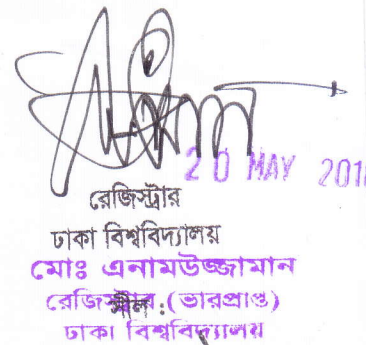 20 MAY 201
রেজিস্ট্রার
ঢাকা বিশ্ববিদ্যালয়
মোঃ এনামউজ্জামান
রেজিস্ট্রার (ভারপ্রাপ্ত)
সীল :
ঢাকা বিশ্ববিদ্যালয়